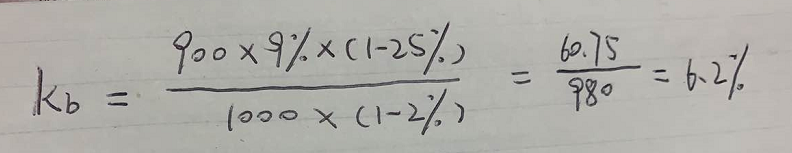 Kb = \frac{900 × 9% × (1-25%)}{1000 × (1-2%)} = \frac{60.75}{980} = 6.2%